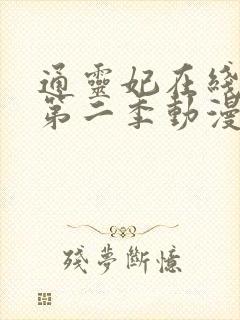 通靈妃在綫
第二季動漫
殘夢斷憶